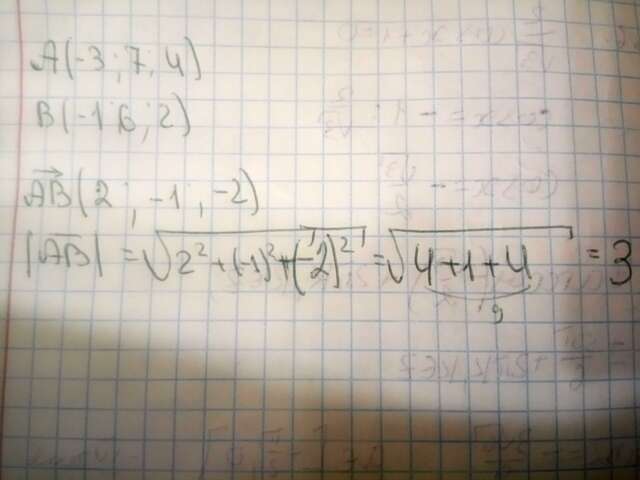 A(-3; 7; 4)
B(-1; 6; 2)
AB(2; -1; -2)
|AB| = √2² + (-1)² + (-2)² = √4+1+4 = 3
9